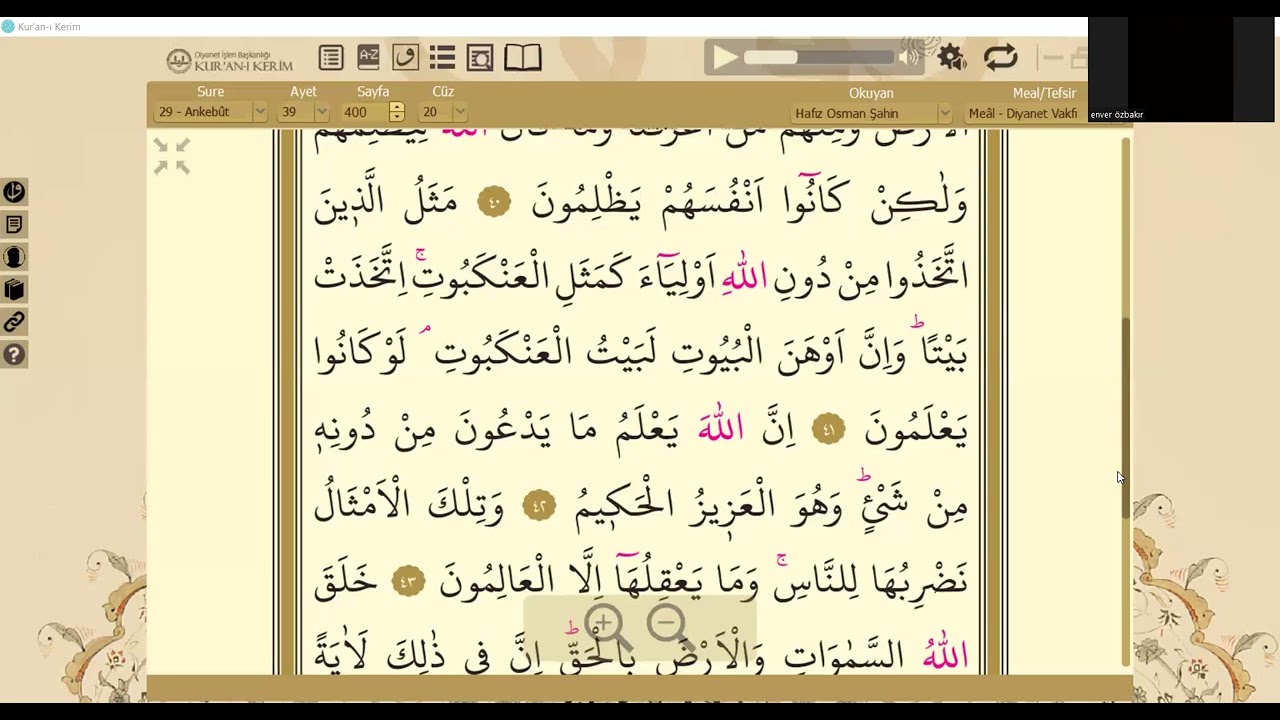 Kur'an-ı Kerim
Diyanet İşleri Başkanlığı
KUR'AN-I KERİM
A-Z
Sure Ayet Sayfa Cüz Okuyan Meal/Tefsir
29 - Ankebût 39 400 20 Hafız Osman Şahin Meâl - Diyanet Vakfı
enver özbakır
وَلٰكِنْ كَانُٓوا اَنْفُسَهُمْ يَظْلِمُونَ ﴿٤٠﴾ مَثَلُ الَّذ۪ينَ
اتَّخَذُوا مِنْ دُونِ اللّٰهِ اَوْلِيَٓاءَ كَمَثَلِ الْعَنْكَبُوتِۚ اِتَّخَذَتْ
بَيْتًاۜ وَاِنَّ اَوْهَنَ الْبُيُوتِ لَبَيْتُ الْعَنْكَبُوتِۢ لَوْ كَانُوا
يَعْلَمُونَ ﴿٤١﴾ اِنَّ اللّٰهَ يَعْلَمُ مَا يَدْعُونَ مِنْ دُونِه۪
مِنْ شَيْءٍۜ وَهُوَ الْعَز۪يزُ الْحَك۪يمُ ﴿٤٢﴾ وَتِلْكَ الْاَمْثَالُ
نَضْرِبُهَا لِلنَّاسِۚ وَمَا يَعْقِلُهَٓا اِلَّا الْعَالِمُونَ ﴿٤٣﴾ خَلَقَ
اللّٰهُ السَّمٰوَاتِ وَالْاَرْضَ بِالْحَقِّۜ اِنَّ ف۪ي ذٰلِكَ لَاٰيَةً